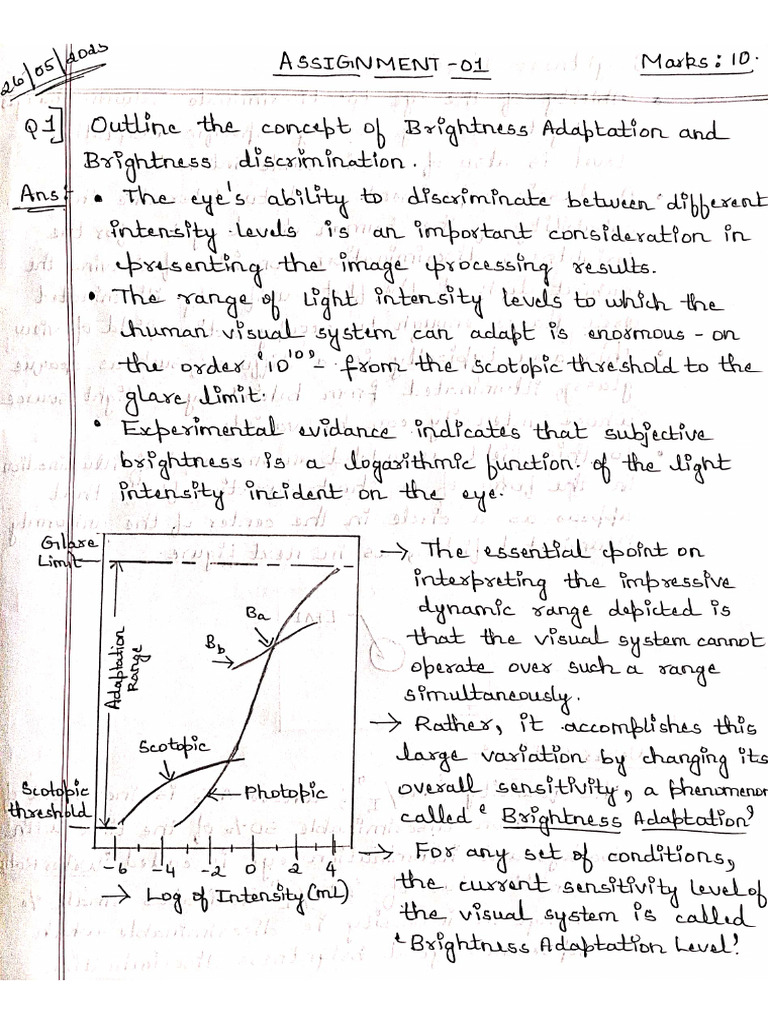 26/05/2025
ASSIGNMENT-01
Marks: 10.
Q1] Outline the concept of Brightness Adaptation and
Brightness discrimination.
Ans:- • The eye's ability to discriminate between different
intensity levels is an important consideration in
presenting the image processing results.
• The range of light intensity levels to which the
human visual system can adapt is enormous - on
the order '10¹⁰' - from the scotopic threshold to the
glare limit.
• Experimental evidance indicates that subjective
brightness is a logarithmic function of the light
intensity incident on the eye.
Glare
Limit
Adaptation
Range
Ba
Bb
Scotopic
Photopic
Scotopic
threshold
-6 -4 -2 0 2 4
→ Log of Intensity (mL)
→ The essential point on
interpreting the impressive
dynamic range depicted is
that the visual system cannot
operate over such a range
simultaneously.
→ Rather, it accomplishes this
large variation by changing its
overall sensitivity, a phenomenon
called 'Brightness Adaptation'
→ For any set of conditions,
the current sensitivity level of
the visual system is called
'Brightness Adaptation Level'.